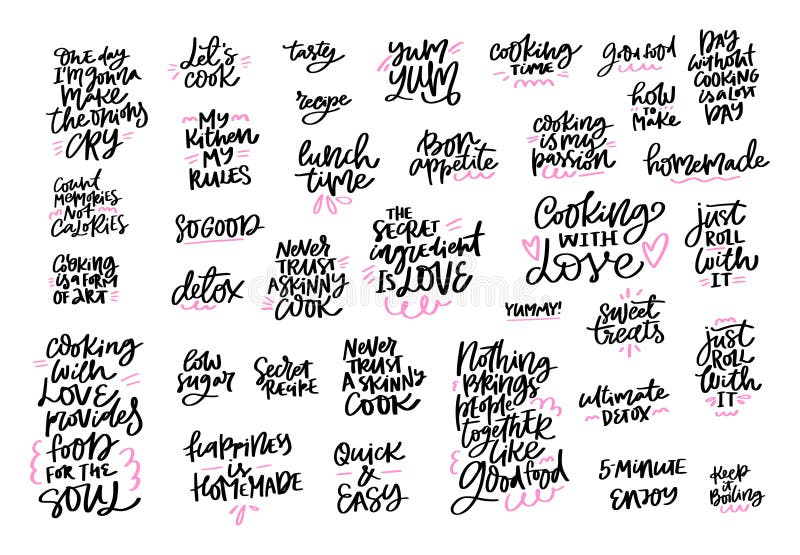 One day
I'm gonna
make
the onions
CRY
Let's
cook
tasty
recipe
yum
yum
cooking
TIME
good food
how
to
make
DAY
without
COOKING
is a lost
DAY
My
Kithen
My
RULES
lunch
time
Bon
appetite
cooking
is my
passion
homemade
Count
Memories
Not
Calories
SO GOOD
THE
SECRET
ingredient
is LOVE
Cooking
WITH
Love
just
ROLL
with
IT
Cooking
is a form
of art
detox
Never
TRUST
A SKINNY
COOK
YUMMY!
sweet
treats
just
ROLL
with
IT
cooking
with
LOVE
provides
food
FOR THE
SOUL
low
sugar
Secret
Recipe
Never
TRUST
A SKINNY
COOK
Nothing
BRINGS
people
together
like
good food
ultimate
DETOX
happiney
is
HOMEMADE
Quick
&
EASY
5-MINUTE
ENJOY
Keep
it
Boiling
dreamstime